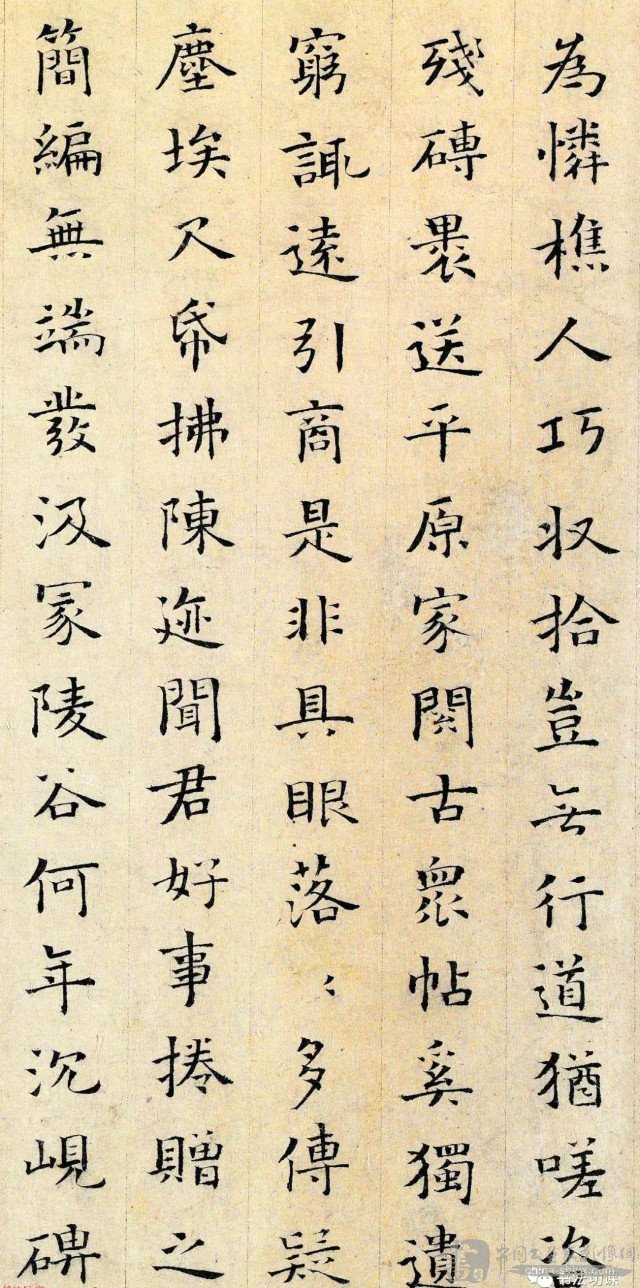 為憐樵人巧収拾豈无行道猶嗟
殘磚裹送平原家閱古衆帖奚獨遺
窮諏遠引商是非具眼落〻多傳疑
塵埃尺帋拂陳迹聞君好事捲贈之
簡編無端發汲冢陵谷何年沉峴碑
书法功课